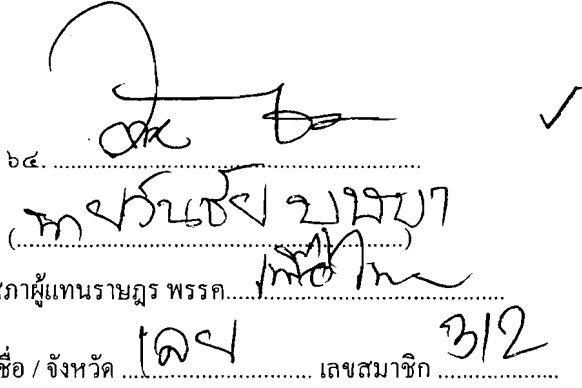 ๖๔. ....................
(นายวันชัย บุษบา)
สภาผู้แทนราษฎร พรรค เพื่อไทย
ชื่อ / จังหวัด เลย เลขสมาชิก 312